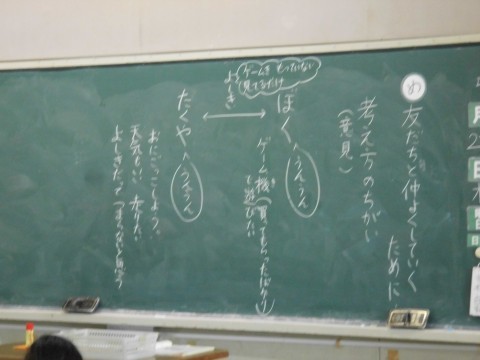 め 友だちと仲よくしていく
ために
考え方のちがい
(意見)
ゲームき もっていない
見てるだけ
よしき
ぼく
うんうん
ゲーム機(買ってもらったばかり)
で遊びたい
たくや
うんうん
おにごっこしよう。
天気もいい、走りたい
よしきだって つまらないと思う
月
日